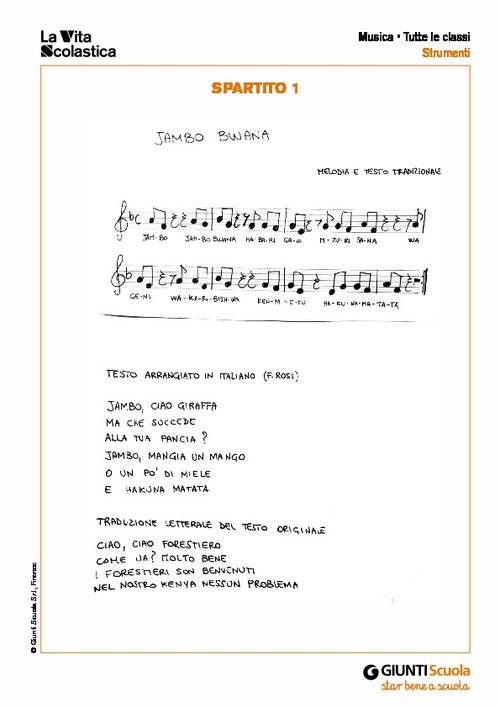 La Vita
Scolastica
Musica • Tutte le classi
Strumenti
SPARTITO 1
JAMBO BWANA
MELODIA E TESTO TRADIZIONALE
JAM-BO JAM-BO BWANA HA-BA-RI GA-NI M-ZU-RI SA-NA WA
GE-NI WA-KA-RI-BISH-WA KEN-YA YE-TU HA-KU-NA-MA-TA-TA
TESTO ARRANGIATO IN ITALIANO (F. ROSI)
JAMBO, CIAO GIRAFFA
MA CHE SUCCEDE
ALLA TUA PANCIA?
JAMBO, MANGIA UN MANGO
O UN PO' DI MIELE
E HAKUNA MATATA
TRADUZIONE LETTERALE DEL TESTO ORIGINALE
CIAO, CIAO FORESTIERO
COME VA? MOLTO BENE
I FORESTIERI SON BENVENUTI
NEL NOSTRO KENYA NESSUN PROBLEMA
© Giunti Scuola S.r.l., Firenze
GIUNTI Scuola
star bene a scuola